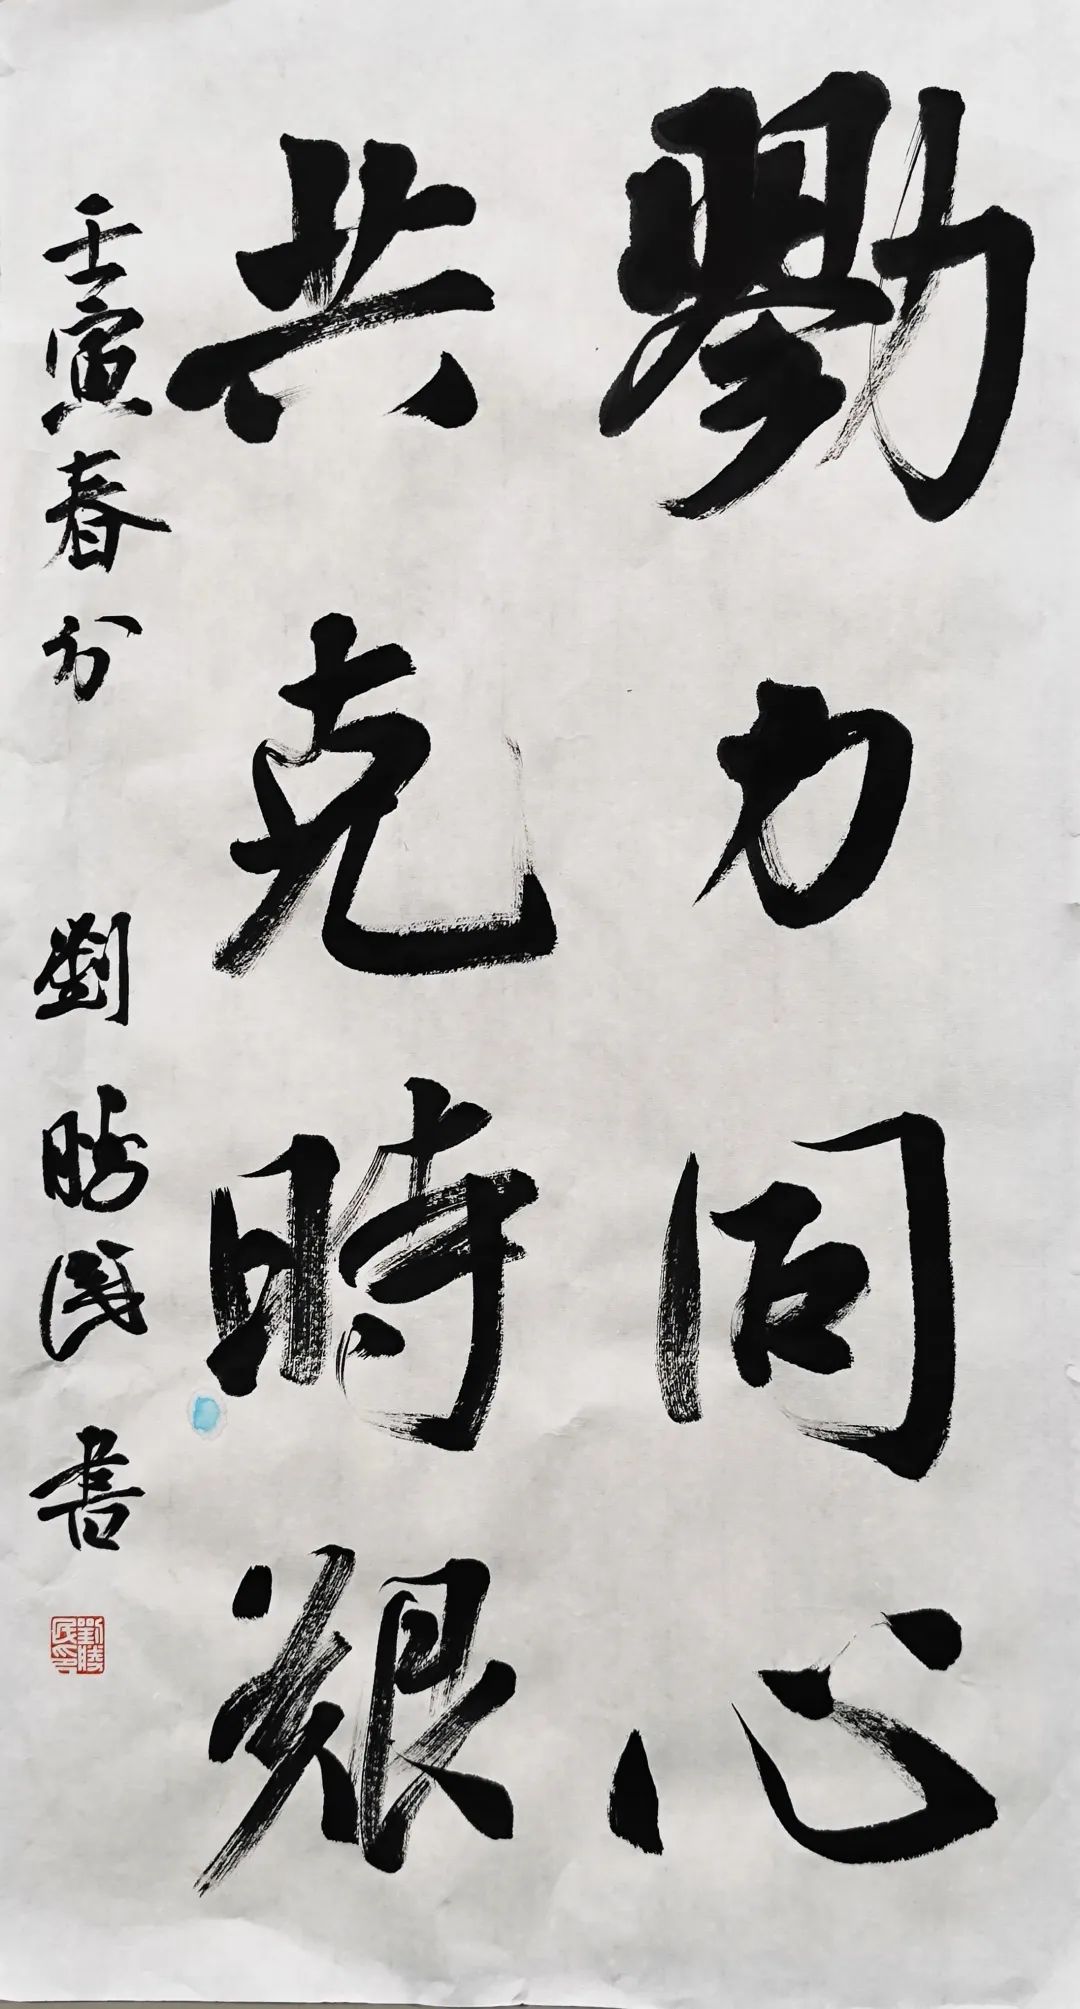 勠力同心
共克時艱
壬寅春分 劉勝民書
劉勝民印